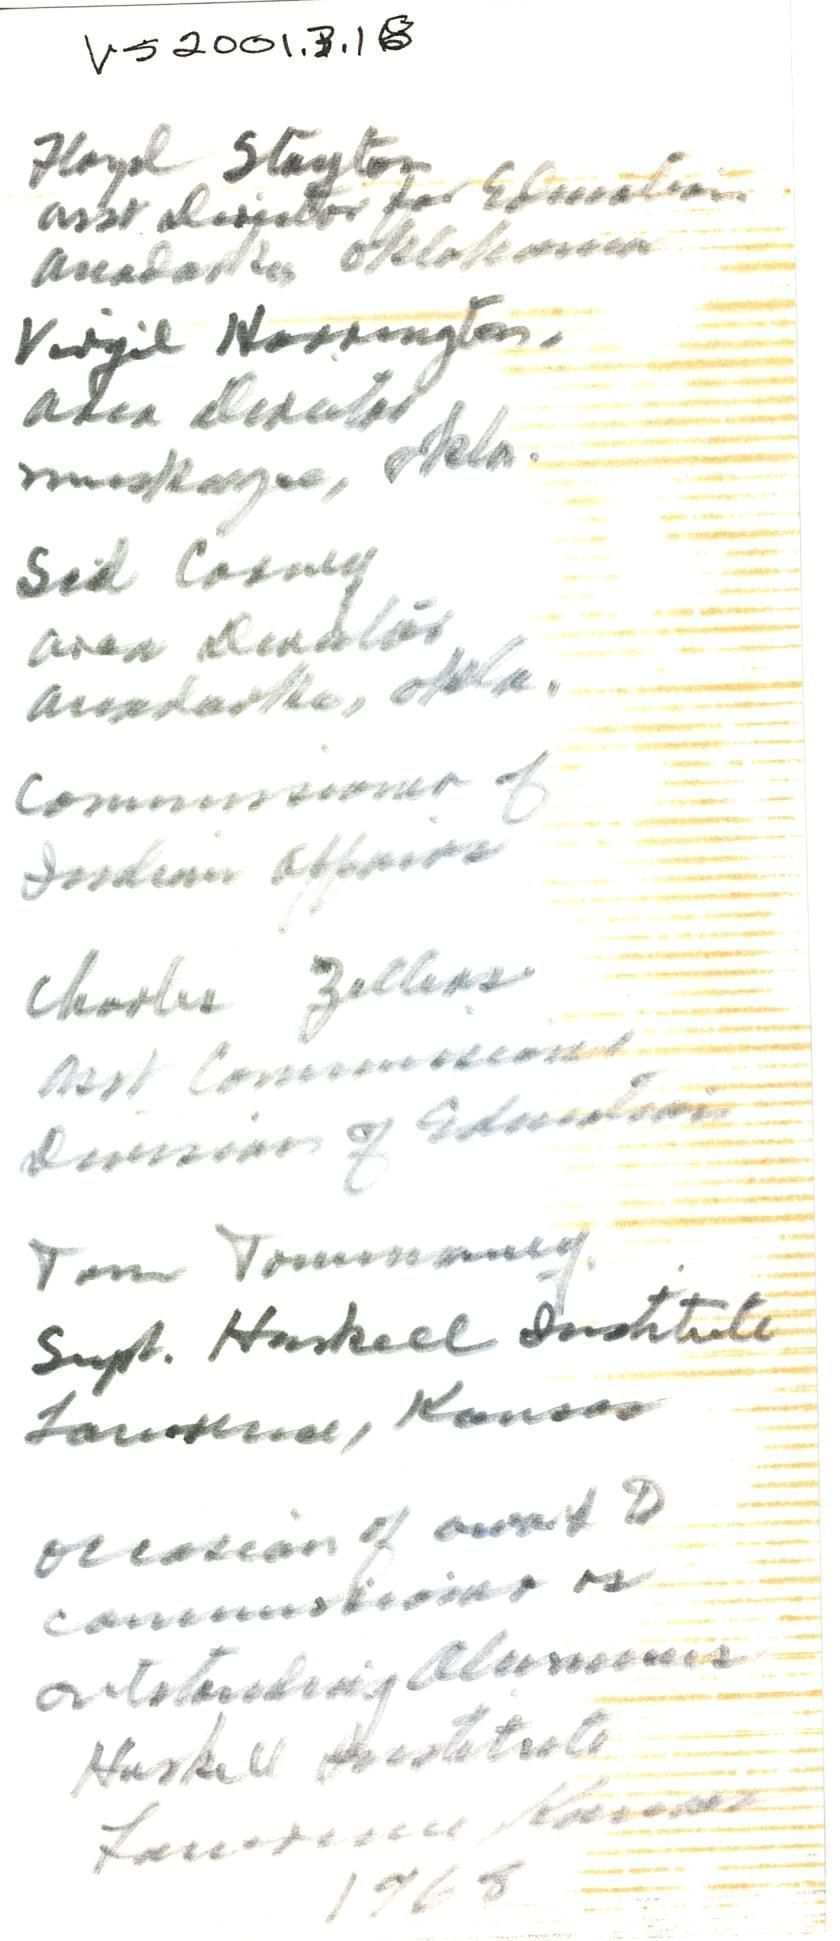 VS 2001.3.18
Floyd Stayton
Asst Director for Education
Anadarko Oklahoma
Virgil Harrington.
Area Director
Muskogee, Okla.
Sid Carney
Area Director
Anadarko, Okla.
Commissioner of
Indian Affairs
Charles Zellers
Asst Commissioner
Division of Education
Tom Tommaney.
Supt. Haskell Institute
Lawrence, Kansas
Occasion of award
commissioner as
outstanding Alumnus
Haskell Institute
Lawrence Kansas
1968